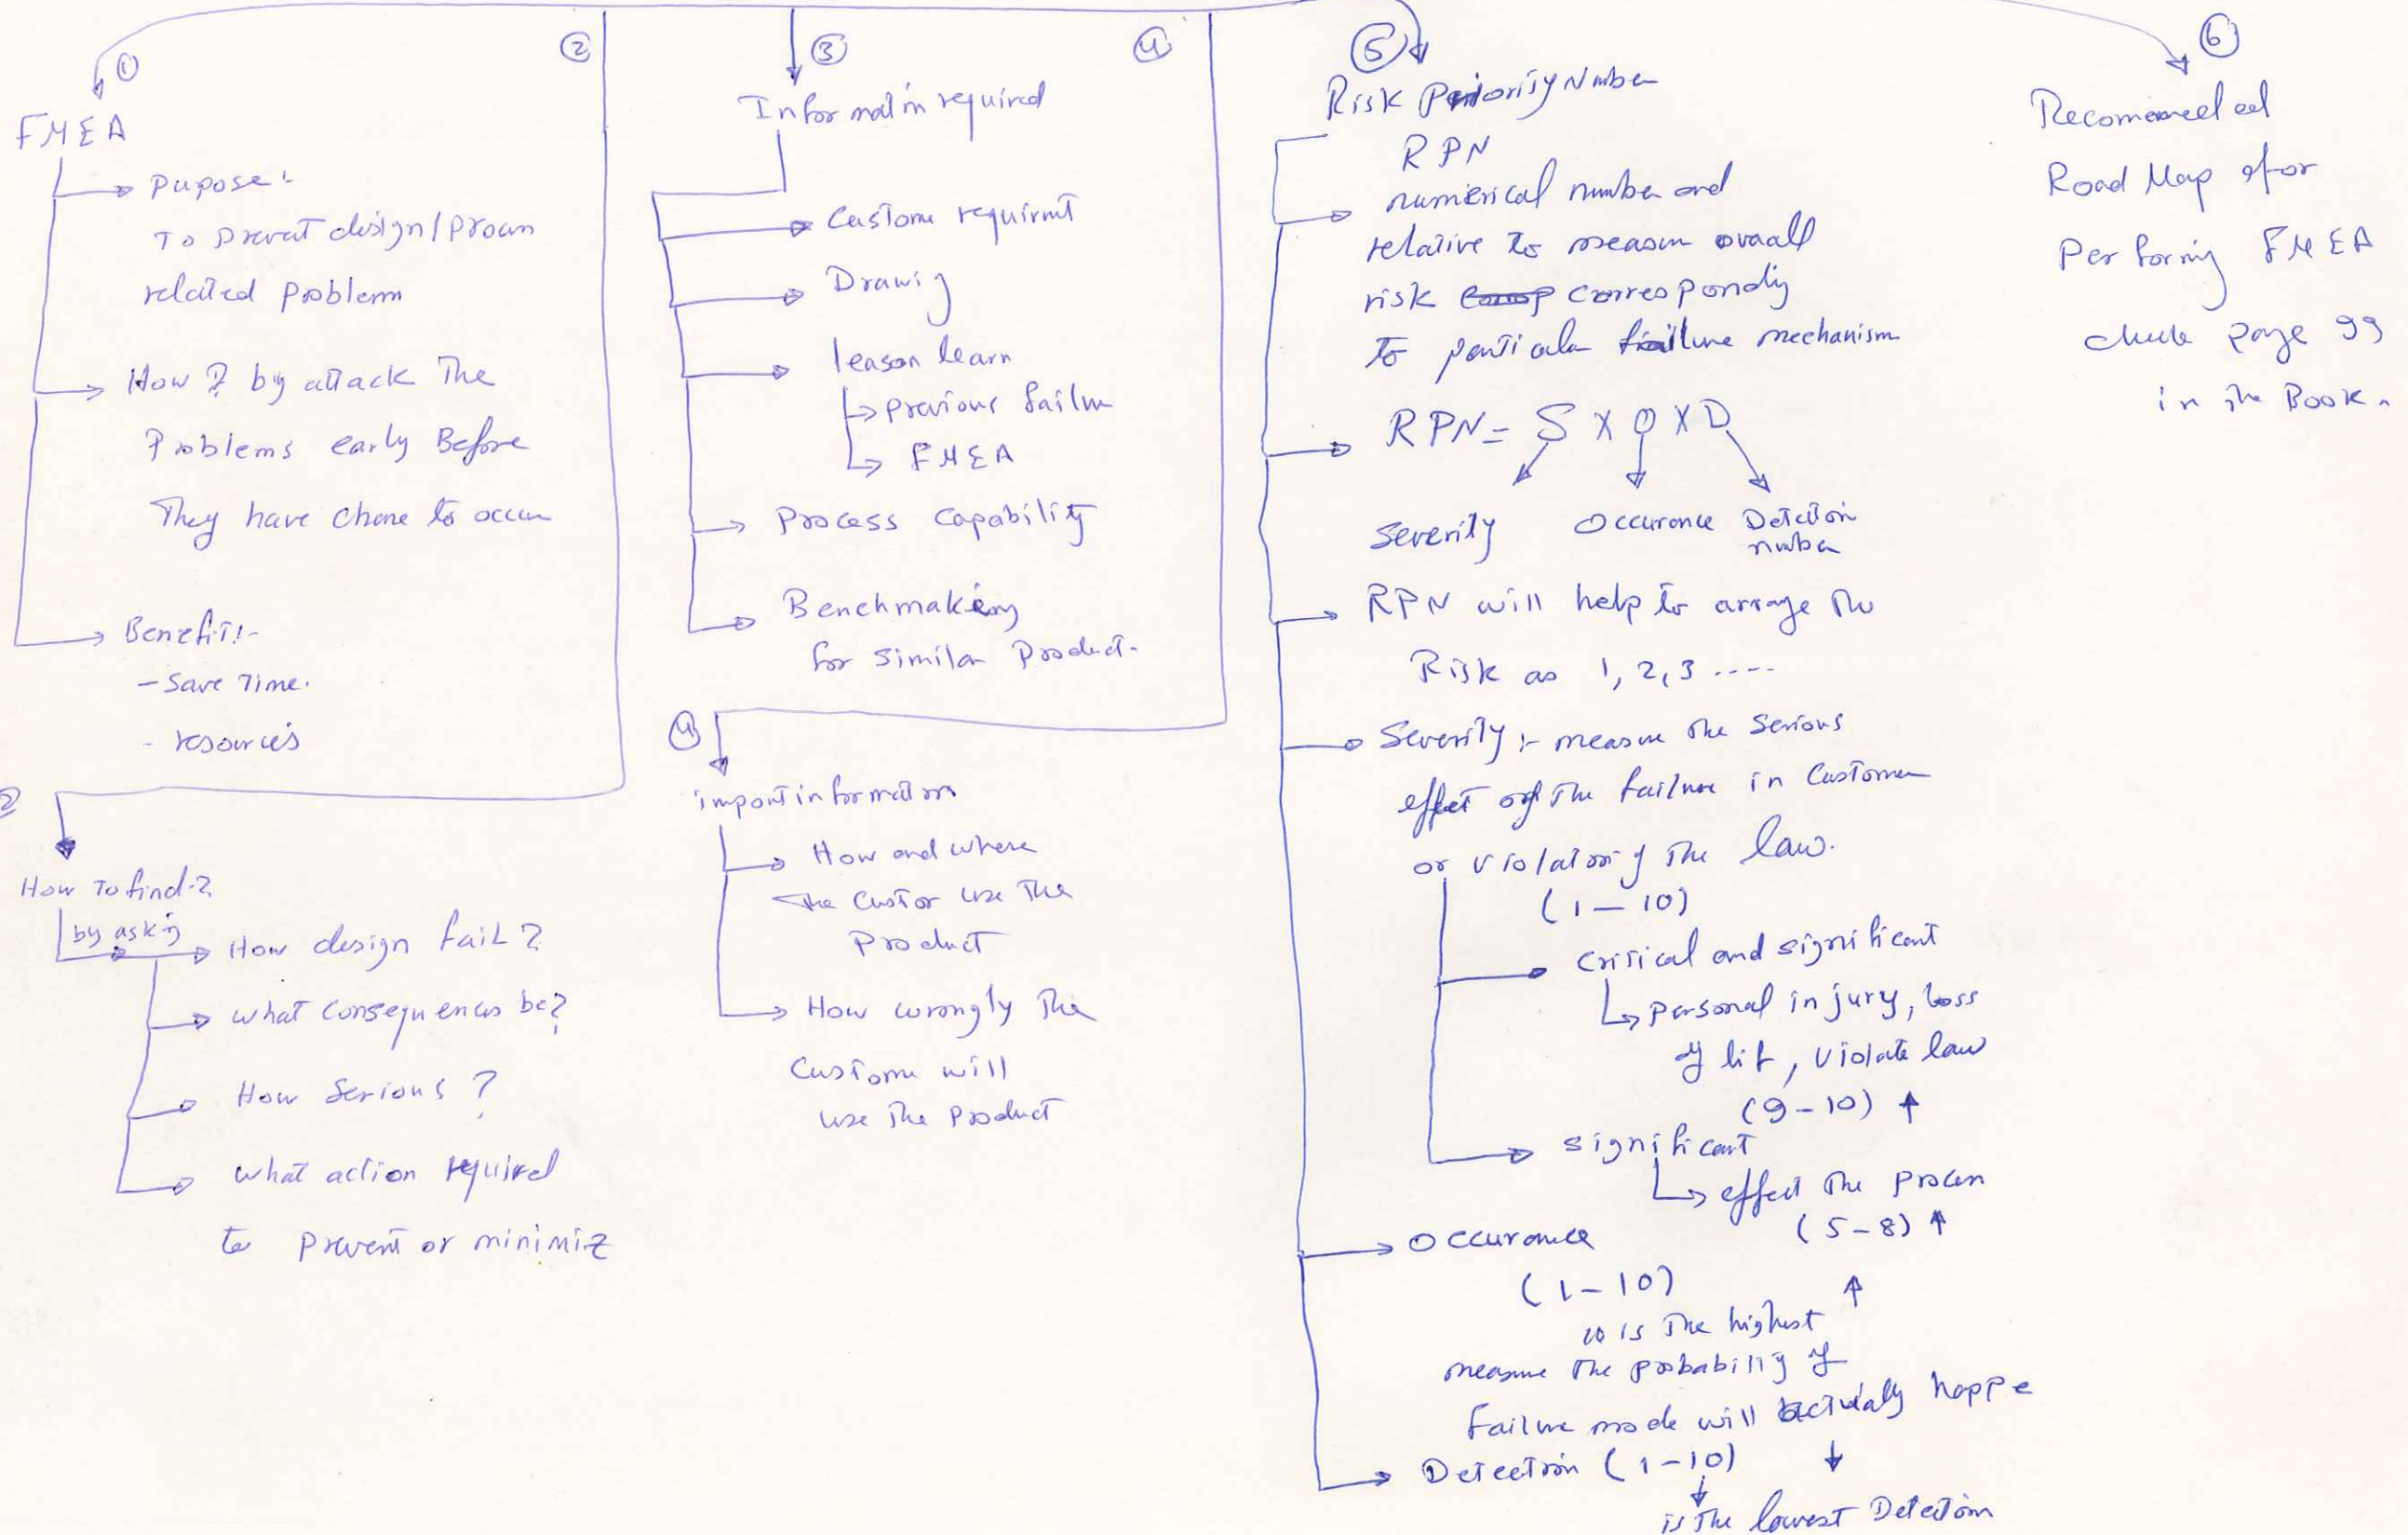 ①
FMEA
Pupose:
To prevent design/process
related problem
How? by attack The
Problems early Before
They have chane to occur
Benefit:-
- Save Time.
- resources
②
2
How To find?
by askig
How design fail?
what consequences be?
How Serious?
what action required
to prevent or minimiz
③
Information required
Custome requirmt
Drawig
leason learn
previous failure
FMEA
Process Capability
Benchmaking
for Similar Product.
④
④
import information
How and where
the Custor use The
Product
How wrongly The
Custome will
use The Product
⑤
Risk Priority Number
RPN
numerical number and
relative to measure overall
risk correspondig
to particular failure mechanism
RPN = S X O X D
Severity Occurance Detection
number
RPN will help to arrange the
Risk as 1, 2, 3 ----
Severity :- measure the Serious
effect of The failure in Customer
or violation of The law.
(1 – 10)
critical and significant
personal injury, loss
of lif, violate law
(9 – 10) ↑
significant
effect the process
(5 – 8) ↑
Occurance
(1 – 10) ↑
10 is The highest
measure the probability of
Failure mode will actually happe
Detection (1 – 10) ↓
is The lowest Detection
⑥
Recommended
Road Map for
Performing FMEA
check page 99
in The Book.